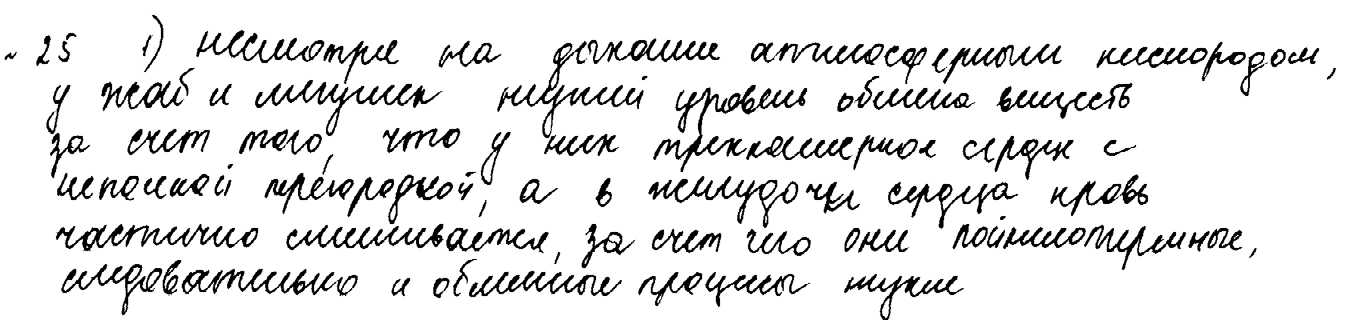 № 25 1) несмотря на дыхание атмосферным кислородом,
у жаб и лягушек низкий уровень обмена веществ
за счет того, что у них трехкамерное сердце с
неполной перегородкой, а в желудочке сердца кровь
частично смешивается, за счет чего они пойкилотермные,
следовательно и обменные процессы низкие